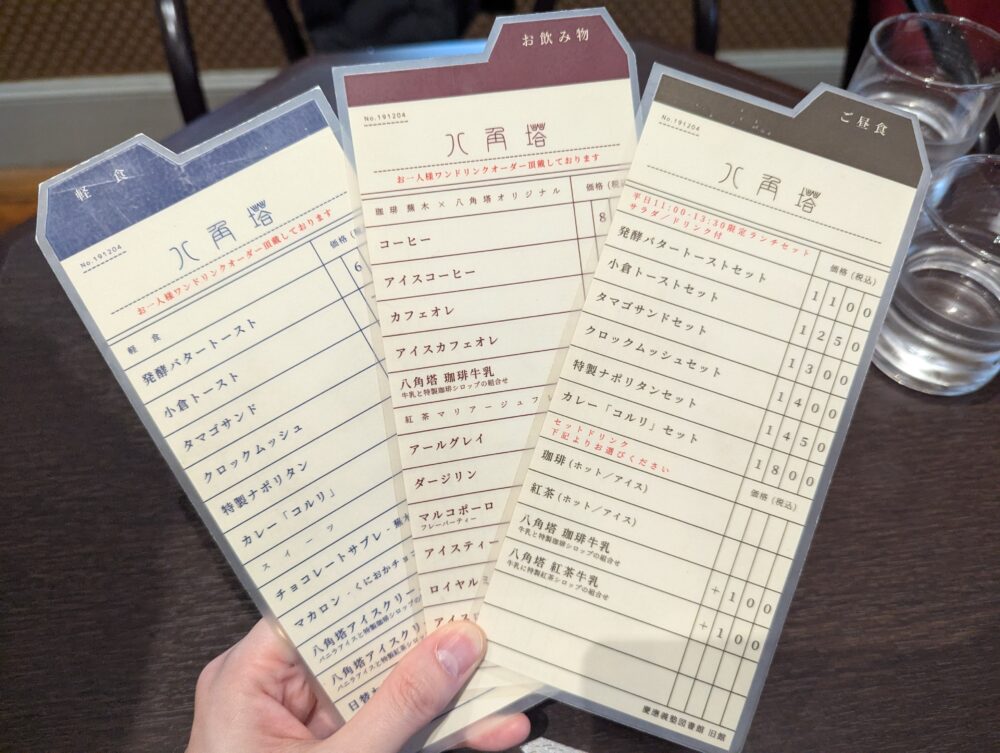 軽食
No.191204
八角塔
お一人様ワンドリンクオーダー頂戴しております
軽食
価格
発酵バタートースト
6
小倉トースト
タマゴサンド
クロックムッシュ
特製ナポリタン
カレー「コルリ」
スイーツ
チョコレートサブレ - 蕪木
マカロン - くにおかチョ
八角塔アイスクリー
バニラアイスと特製珈琲シロップの
八角塔アイスクリ
バニラアイスと特製紅茶シロップの
日替
お飲み物
No.191204
八角塔
お一人様ワンドリンクオーダー頂戴しております
珈琲 蕪木 × 八角塔オリジナル
価格(税
コーヒー
8
アイスコーヒー
カフェオレ
アイスカフェオレ
八角塔 珈琲牛乳
牛乳と特製珈琲シロップの組合せ
紅茶 マリアージュフ
アールグレイ
ダージリン
マルコポーロ
フレーバーティー
アイスティー
ロイヤルミ
アイス
ご昼食
No.191204
八角塔
平日11:00-13:30限定ランチセット
サラダ/ドリンク付
価格(税込)
発酵バタートーストセット 1100
小倉トーストセット 1250
タマゴサンドセット 1300
クロックムッシュセット 1400
特製ナポリタンセット 1450
カレー「コルリ」セット 1800
セットドリンク
下記よりお選びください
価格(税込)
珈琲(ホット/アイス)
紅茶(ホット/アイス)
八角塔 珈琲牛乳 +100
牛乳と特製珈琲シロップの組合せ
八角塔 紅茶牛乳 +100
牛乳に特製紅茶シロップの組合せ
慶應義塾図書館 旧館